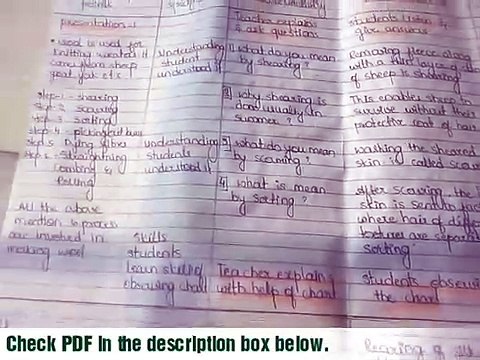 presentation-1
Teacher explains
& ask questions
Students listen &
give answers
• wool is used for
knitting sweater. It
came from sheep
goat yak etc
Step-1 - shearing
Step-2 scouring
Step 3 Sorting
Step 4 - picking out burs
Step 5 Dying fibre
Step 6 - Straightning
Combing &
Rolling
All the above
mention
are involved in
making wool
Understanding
student
understood it
understanding
students
understood it
Skills
students
learn skill of
observing chart
1] What do you mean
by shearing?
2] Why shearing is
done usually in
summer?
3] What do you mean
by scouring?
4] What is mean
by sorting?
Teacher explain
with help of chart
Removing fleece along
with a thin layer of
of sheep is shearing
This enable sheep to
survive without their
protective coat of hair
Washing the sheared
skin is called
After scouring, the
skin is sent to fact
where hair of diff
textures are separat
Sorting
Students observe
the chart
Check PDF in the description box below.